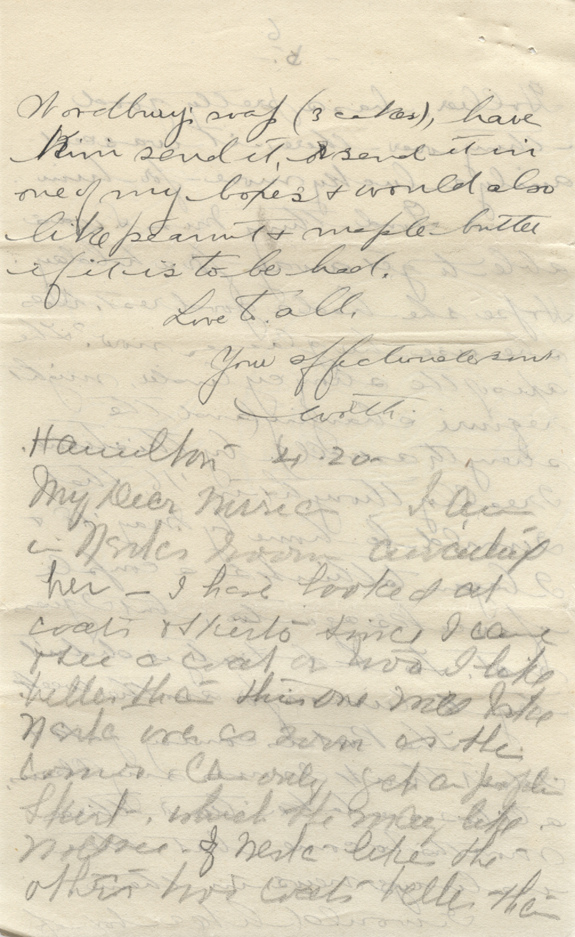 Woodbury's soap (3 cakes), have
him send it, or send it in
one of my boxes & would also
like peanut & maple butter
if it is to be had.
Love to all,
Your affectionate son
Worth.
Hamilton 4.20
My Dear I am
in room awaiting
her – I have looked at
coats & skirts since I came
& see a coat or two I like
better than this one
as soon as she
comes. Can only get a poplin
Skirt, which she may like
likes the
other two coats better than